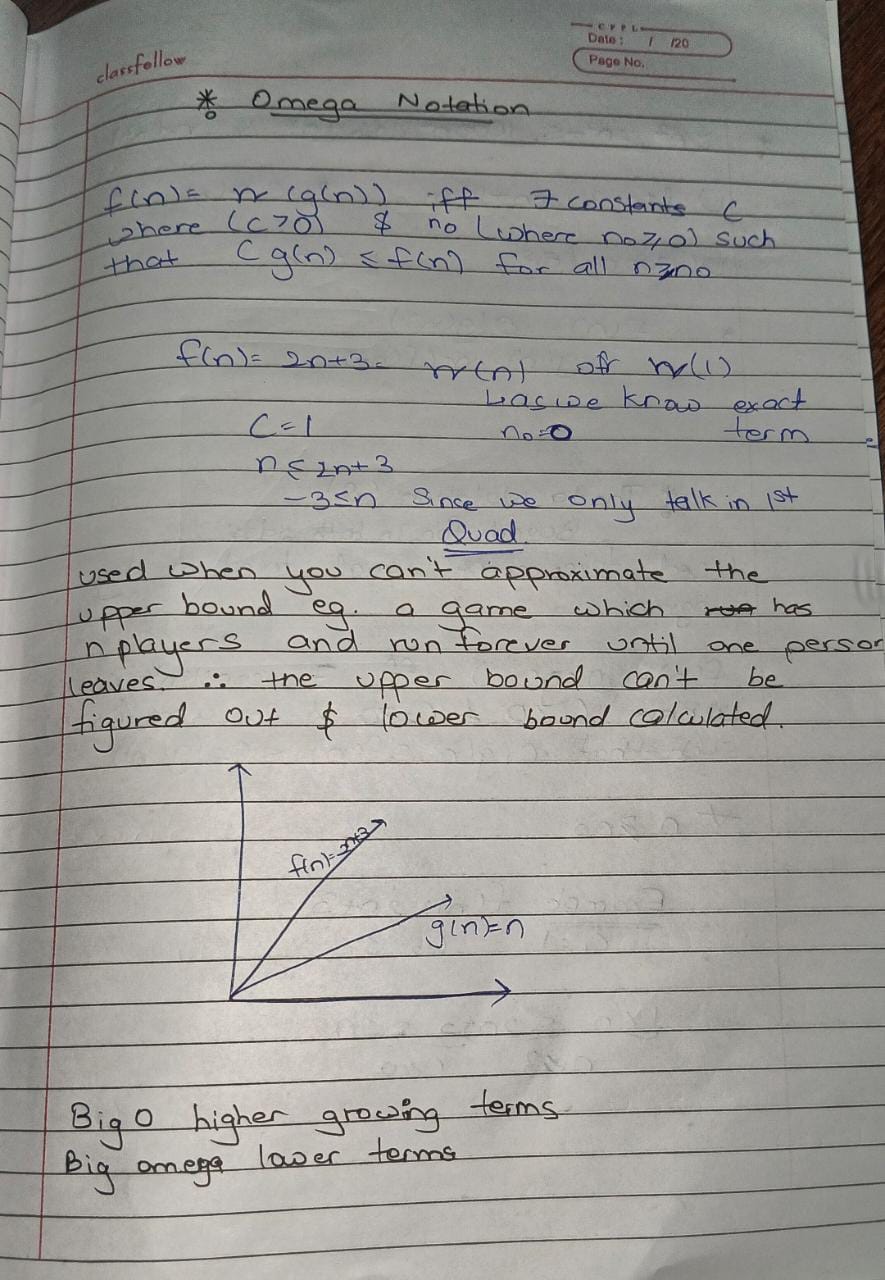 CPPL
Date: / /20
Page No.
classfellow
* Omega Notation
f(n)= Ω (g(n)) iff ∃ constants C
where (c>0) & n₀ (where n₀≥0) such
that C g(n) ≤ f(n) for all n≥n₀
f(n)= 2n+3= Ω(n) or Ω(1)
↳ as we know exact
term
C=1 n₀=0
n ≤ 2n+3
-3≤n Since we only talk in 1st
Quad
used when you can't approximate the
upper bound eg. a game which has
n players and run forever until one person
leaves. ∴ the upper bound can't be
figured out & lower bound calculated.
f(n)=2n+3
g(n)=n
Big O higher growing terms
Big omega lower terms